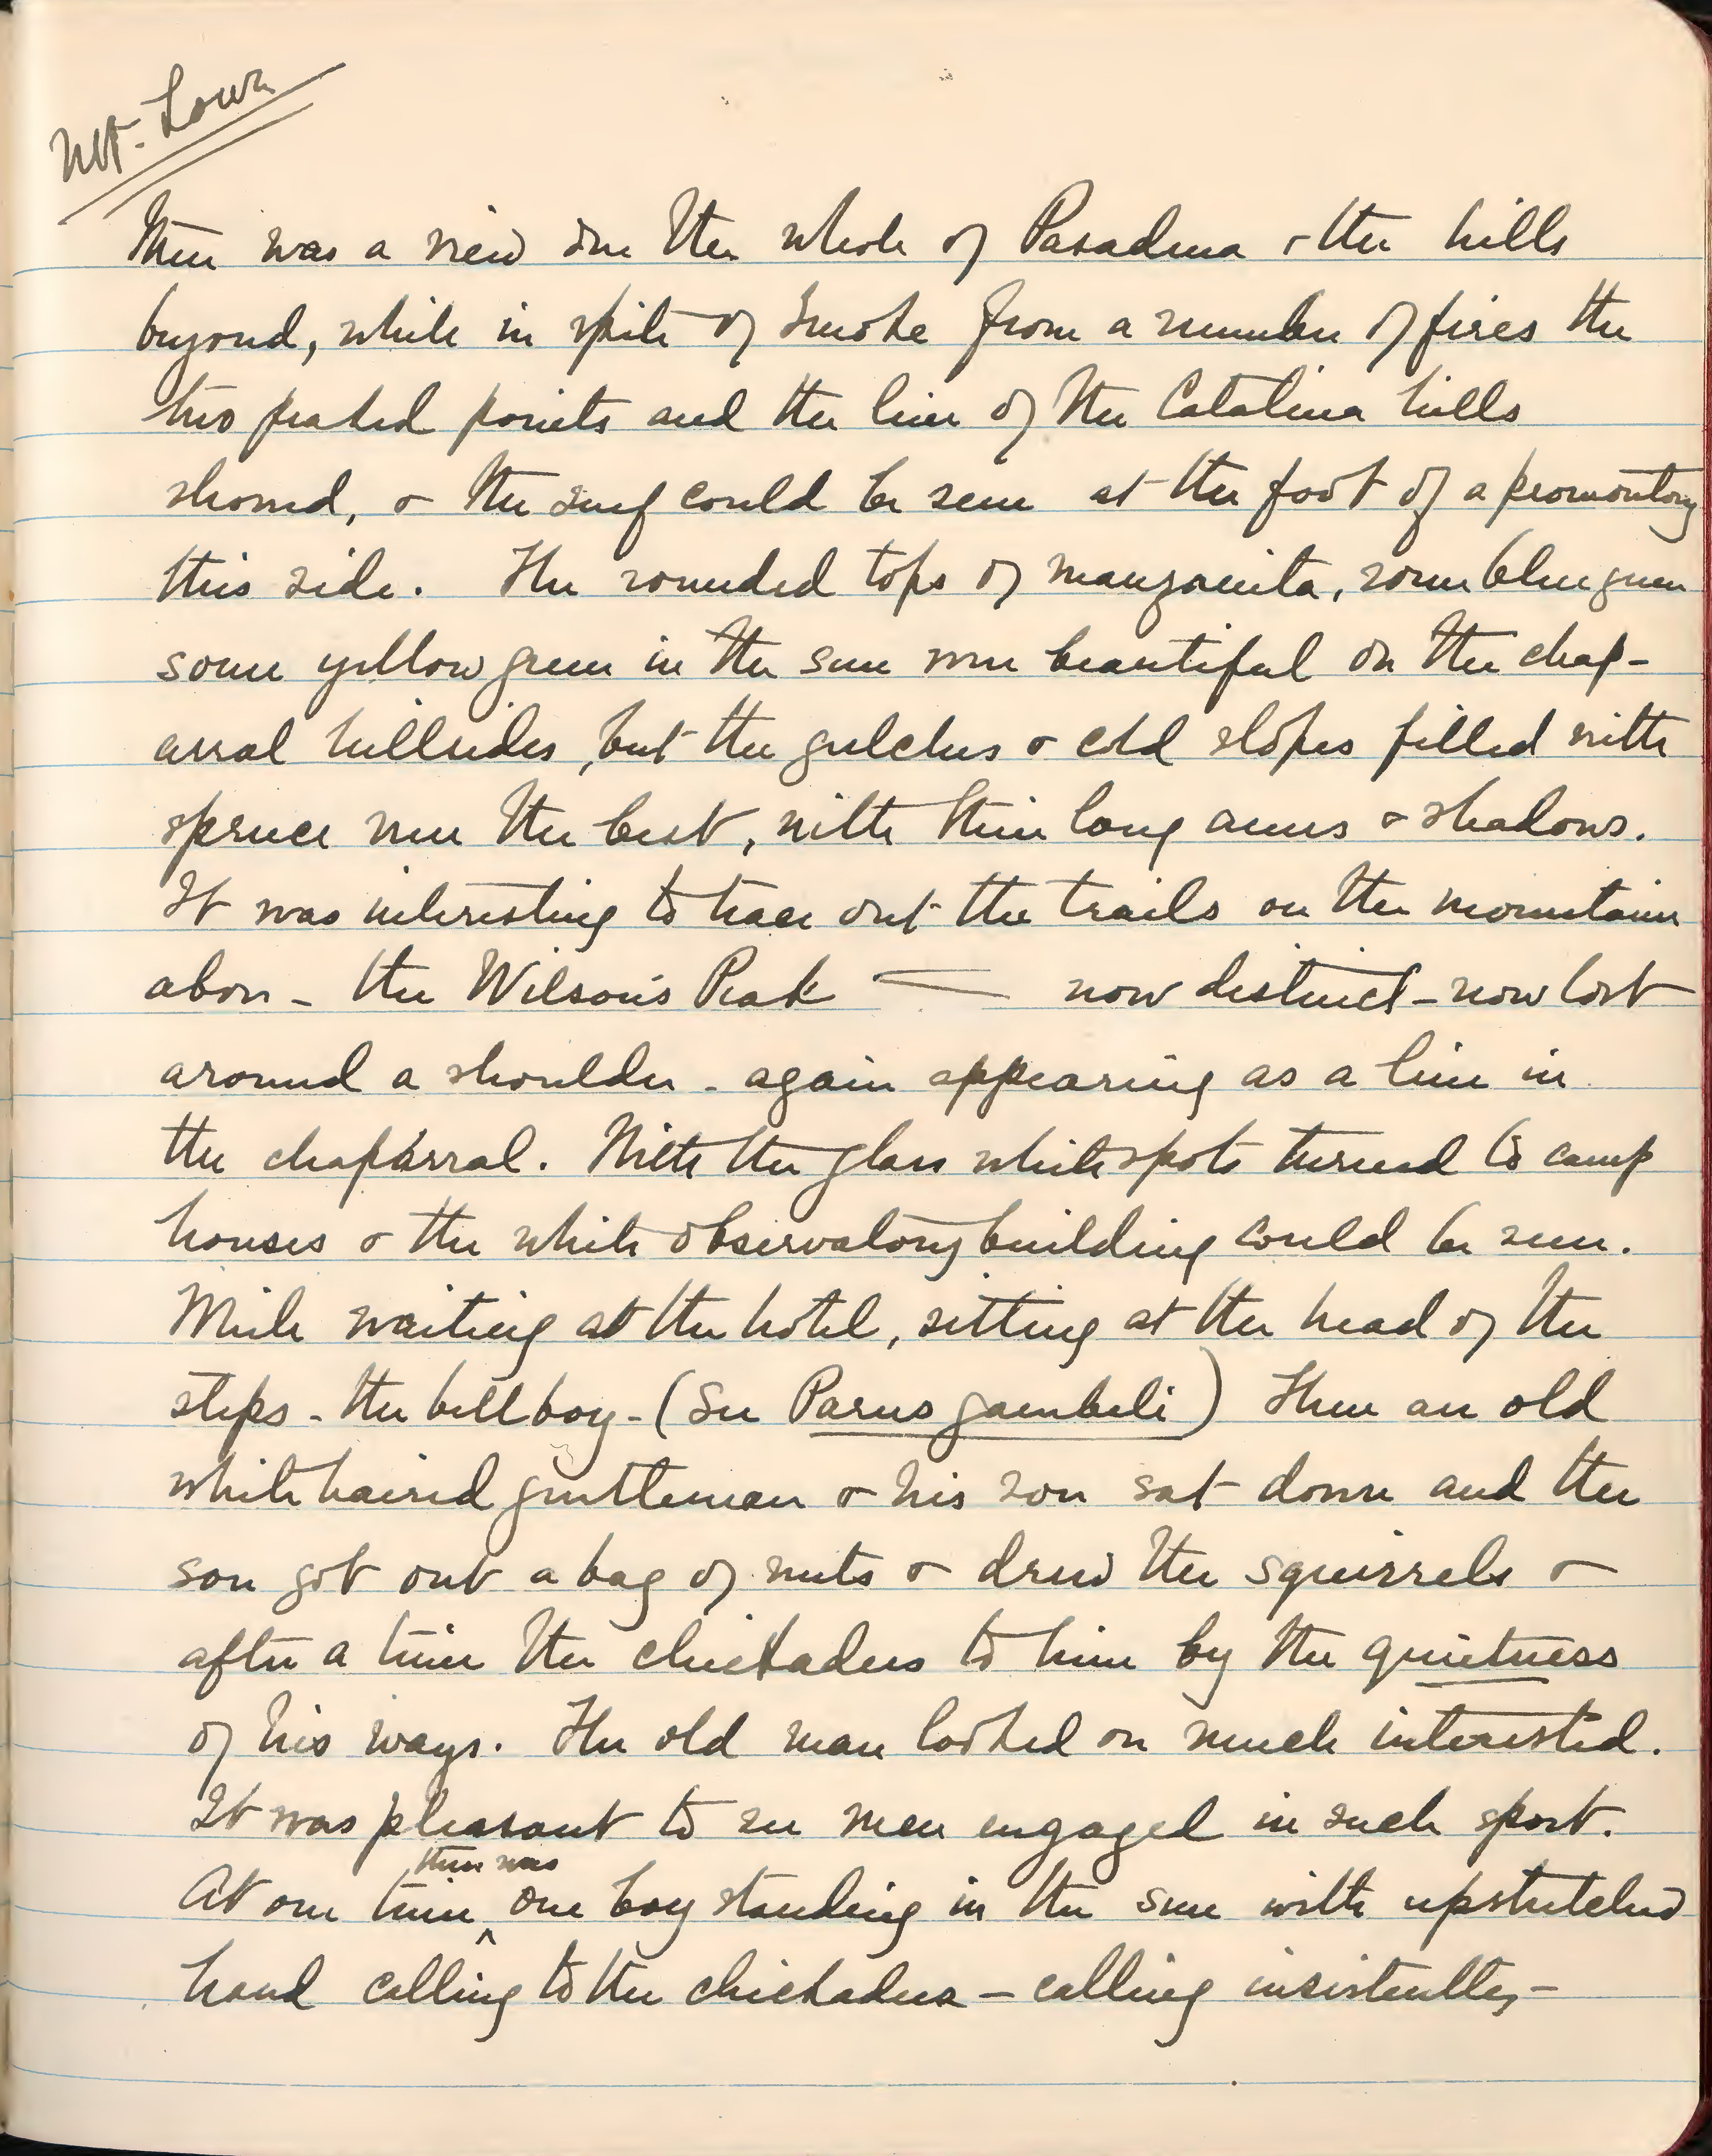 Mt. Lowe
There was a view over the whole of Pasadena & the hills
beyond, while in spite of smoke from a number of fires the
two peaked points and the line of the Catalina hills
showed, & the surf could be seen at the foot of a promontory
this side. The rounded tops of manzanita, some blue green
some yellow green in the sun were beautiful on the chap-
arral hillsides, but the gulches & cold slopes filled with
spruce were the best, with their long arms & shadows.
It was interesting to trace out the trails on the mountains
above - the Wilson's Peak — now distinct - now lost
around a shoulder - again appearing as a line in
the chaparral. With the glass white spots turned to camp
houses & the white observatory building could be seen.
While waiting at the hotel, sitting at the head of the
steps - the bell boy - (See Parus gambeli) Then an old
white haired gentleman & his son sat down and the
son got out a bag of nuts & drew the squirrels &
after a time the chickadees to him by the quietness
of his ways. The old man looked on much interested.
It was pleasant to see men engaged in such sport.
there was
At one time ^ one boy standing in the sun with upstretched
hand calling to the chickadees - calling insistently -